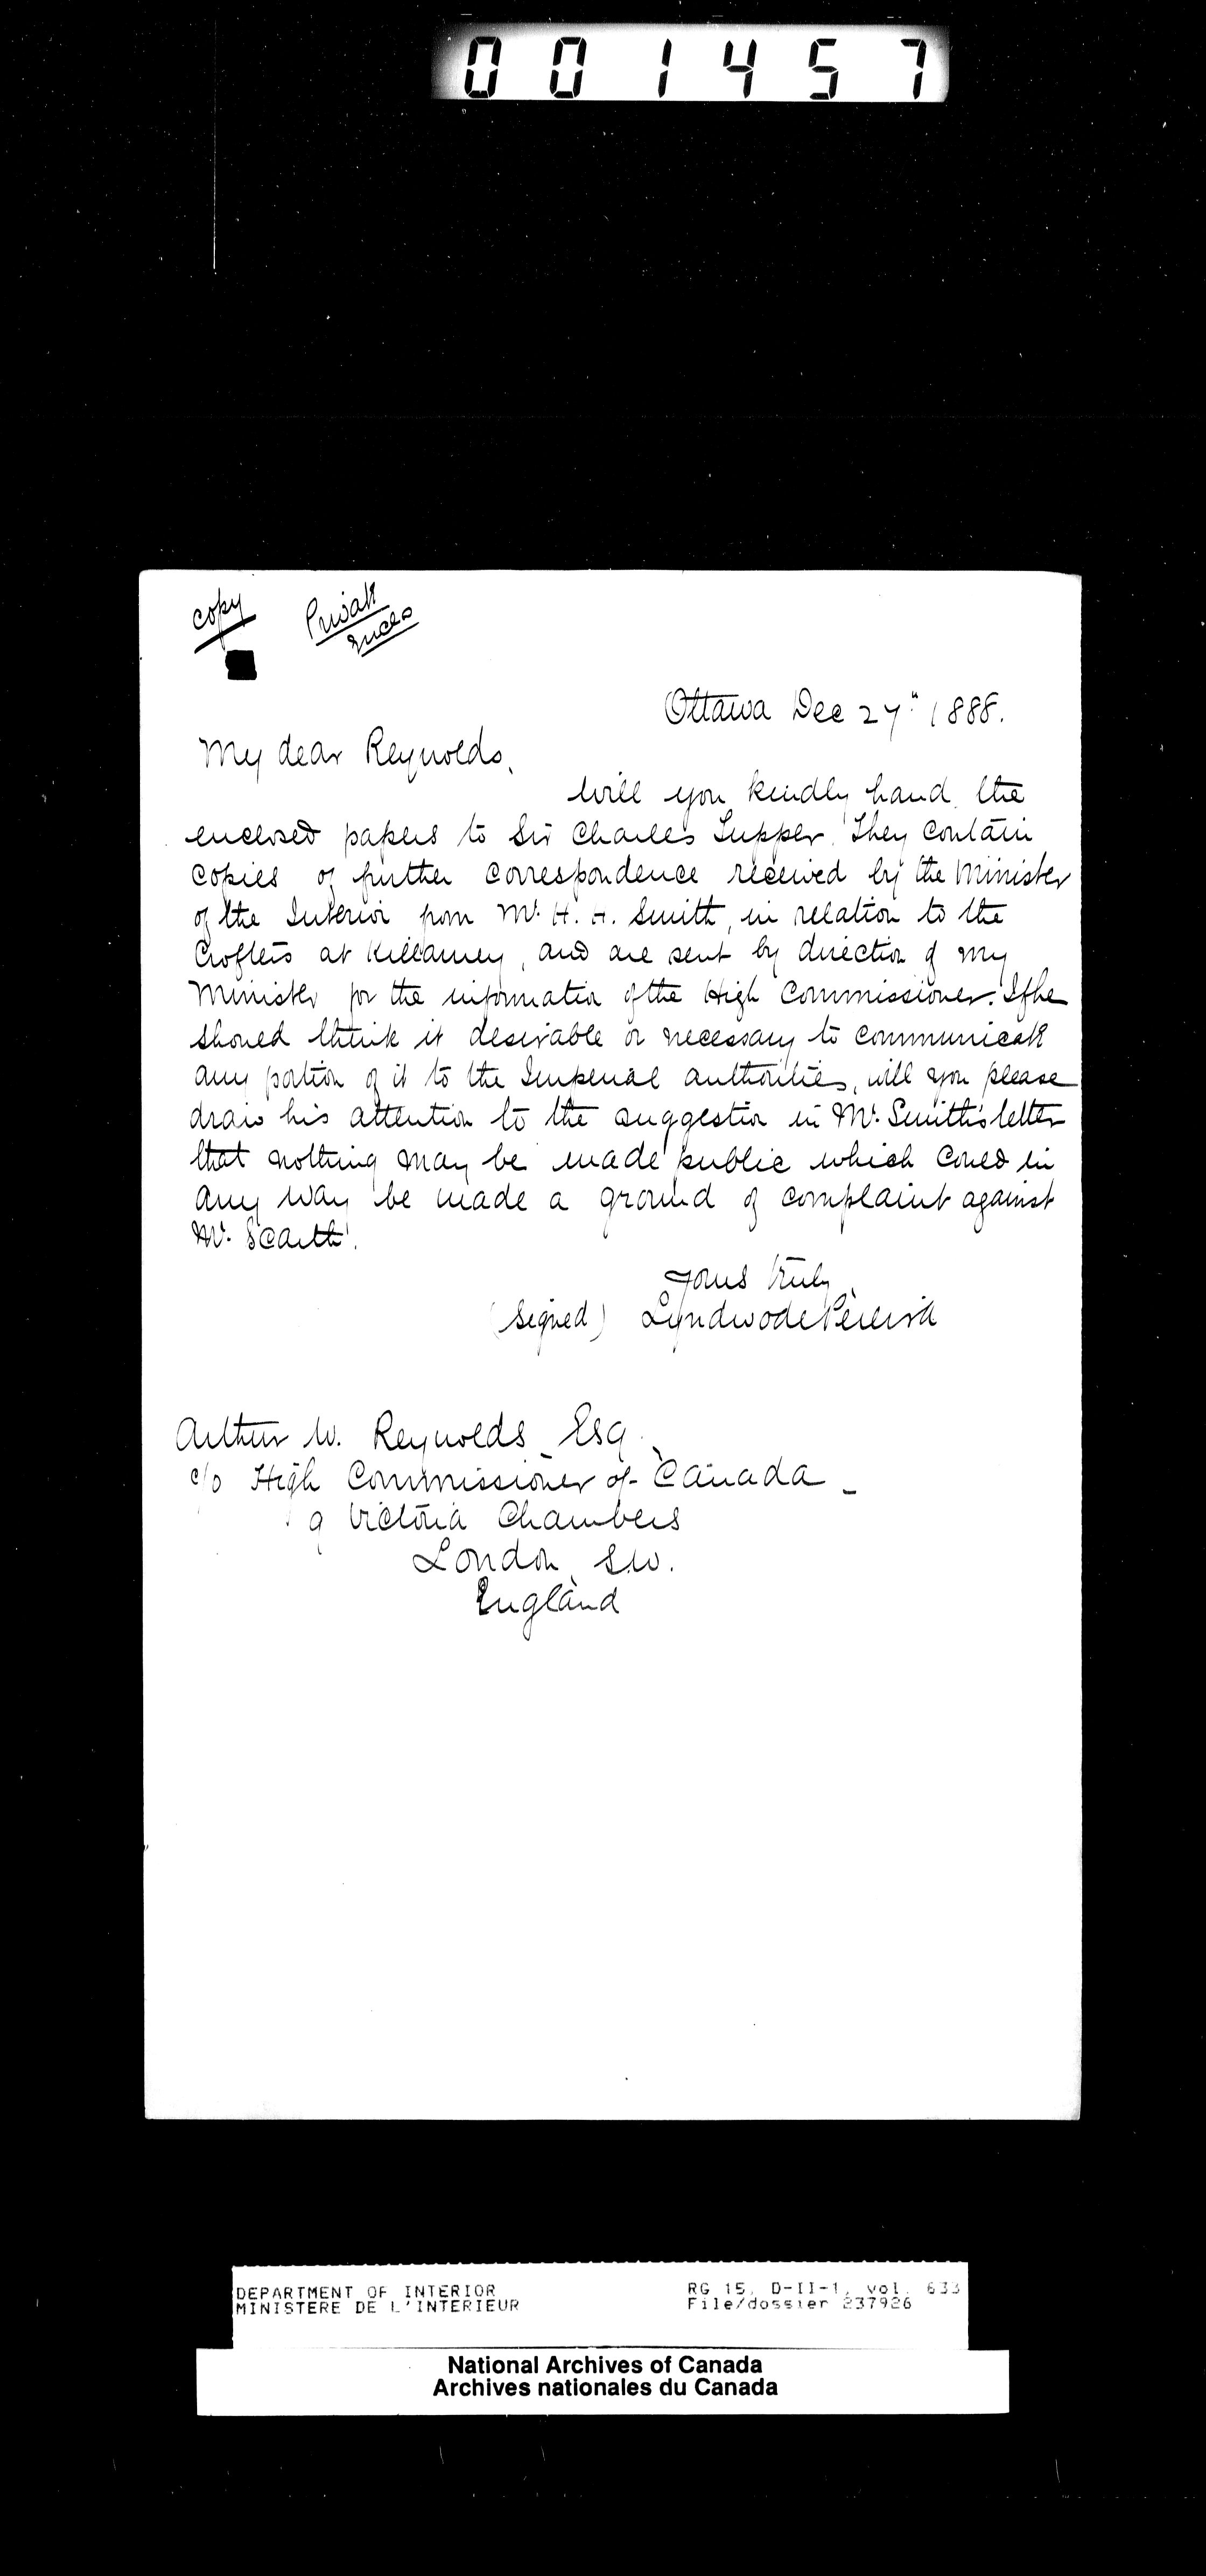 001457
copy
Private
Encls
Ottawa Dec 27th 1888.
My dear Reynolds,
Will you kindly hand the
enclosed papers to Sir Charles Tupper. They contain
copies of further correspondence received by the Minister
of the Interior from Mr. H. H. Smith, in relation to the
Crofters at Killarney, and are sent by direction of my
Minister for the information of the High Commissioner. If he
should think it desirable or necessary to communicate
any portion of it to the Imperial authorities, will you please
draw his attention to the suggestion in Mr. Smith's letter
that nothing may be made public which could in
any way be made a ground of complaint against
Mr. Scarth.
Yours truly
(signed) Lyndwode Pereira
Arthur W. Reynolds Esq.
c/o High Commissioner of Canada
9 Victoria Chambers
London S.W.
England
DEPARTMENT OF INTERIOR RG 15, D-II-1, vol. 633
MINISTERE DE L'INTERIEUR File/dossier 237926
National Archives of Canada
Archives nationales du Canada